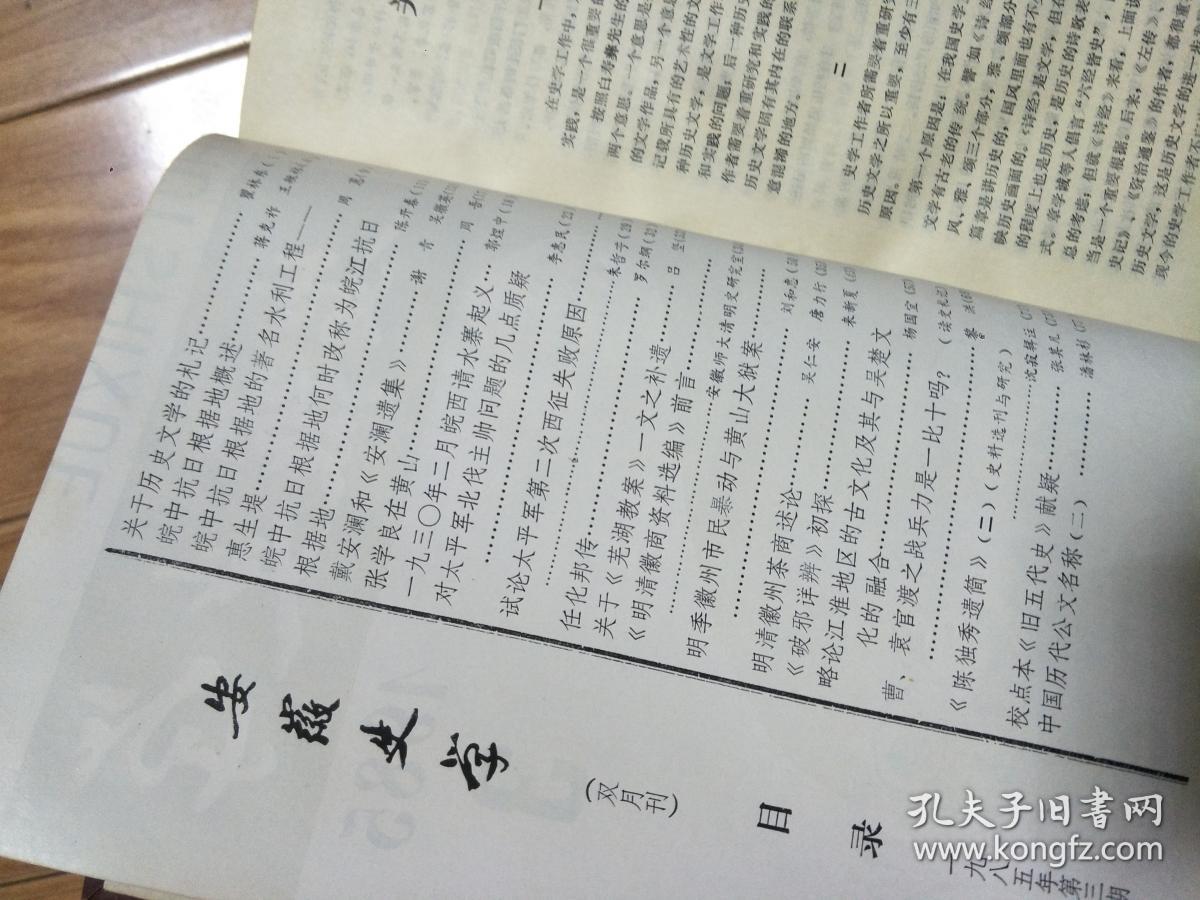 安徽史学
(双月刊)
目录
一九八五年第三期
关于历史文学的札记
皖中抗日根据地概述
皖中抗日根据地的著名水利工程——
惠生堤
皖中抗日根据地何时改称为皖江抗日
根据地
戴安澜和《安澜遗集》
张学良在黄山
一九三〇年二月皖西请水寨起义
对太平军北伐主帅问题的几点质疑
郭煌中
试论太平军第二次西征失败原因
李惠民(23)
任化邦传
朱哲宁(28)
关于《芜湖教案》一文之补遗
罗尔纲
《明清徽商资料选编》前言
吕坚
安徽师大清明史研究室
明季徽州市民暴动与黄山大狱案
刘和惠
明清徽州茶商述论
吴仁安 唐力行
《破邪详辨》初探
来新夏
略论江淮地区的古文化及其与吴楚文
化的融合
杨国宜
曹、袁官渡之战兵力是一比十吗?
《陈独秀遗简》(二)(史料选刊与研究)
校点本《旧五代史》献疑
张其凡
中国历代公文名称(二)
潘林杉
二
在史学工作中,
实践,是一个很重要的
按照白寿彝先生的
两个意思。一个意思是
的文学作品,另一个意思
记载所具有的艺术性的文
种历史文学,是文学工作
和实践的问题;后一种历史
作者需要着重研究和实践的
历史文学固有其内在的联系
意混淆的地方。
史学工作者所需要着重研究
历史文学之所以重要,至少有三
原因。
第一个原因是,在我国史学
文学有古老的传统。譬如《诗经
风、雅、颂三个部分,雅、颂部分
篇章是讲历史的,国风里面也有不
映历史画面的。《诗经》是文学,但在
的程度上也是历史,是历史的诗歌表
式。章学诚等人倡言“六经皆史”,
总的考虑,但就《诗经》来看,上面说
当是一个重要根据。后来,《左传》、
史记》、《资治通鉴》的作者,都很重
历史文学,这是历史文学的进一
现今的史学工作者不
孔夫子旧书网
www.kongfz.com